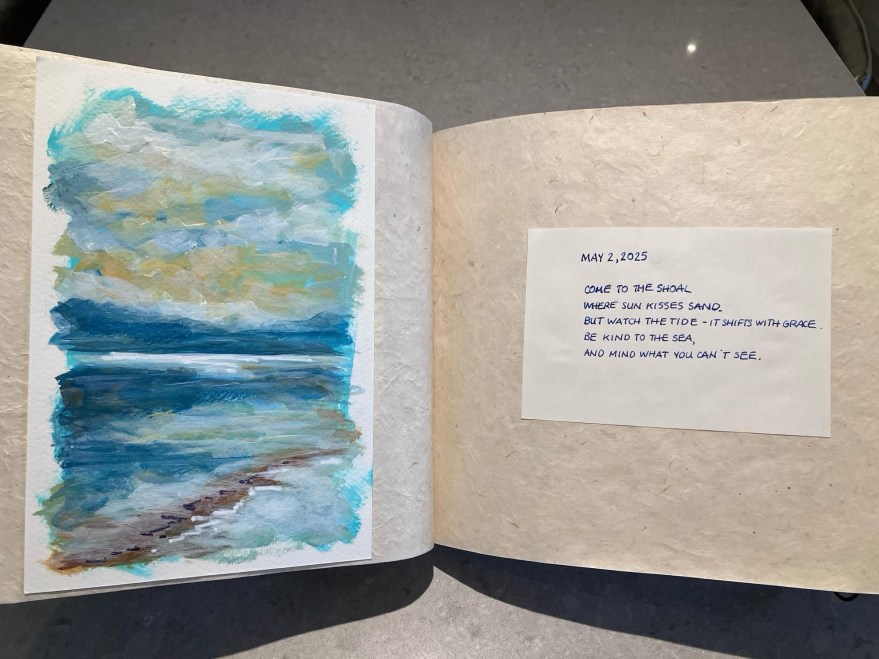 MAY 2, 2025
COME TO THE SHOAL
WHERE SUN KISSES SAND.
BUT WATCH THE TIDE - IT SHIFTS WITH GRACE.
BE KIND TO THE SEA,
AND MIND WHAT YOU CAN'T SEE.